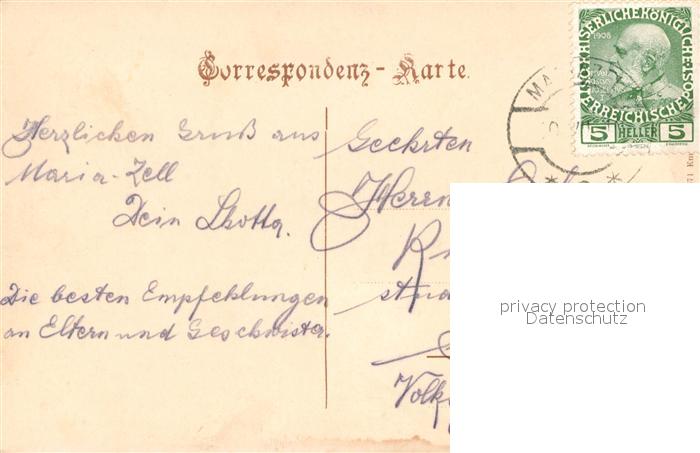 Correspondenz-Karte.
Herzlichen Gruß aus
Maria-Zell
Dein Lhotta.
Die besten Empfehlungen
an Eltern und Geschwister.
Geehrten
Herrn
stud
Volks
KAISERLICHE KÖNIGLICHE
ÖSTERREICHISCHE
1908
5 HELLER 5
MA
privacy protection
Datenschutz